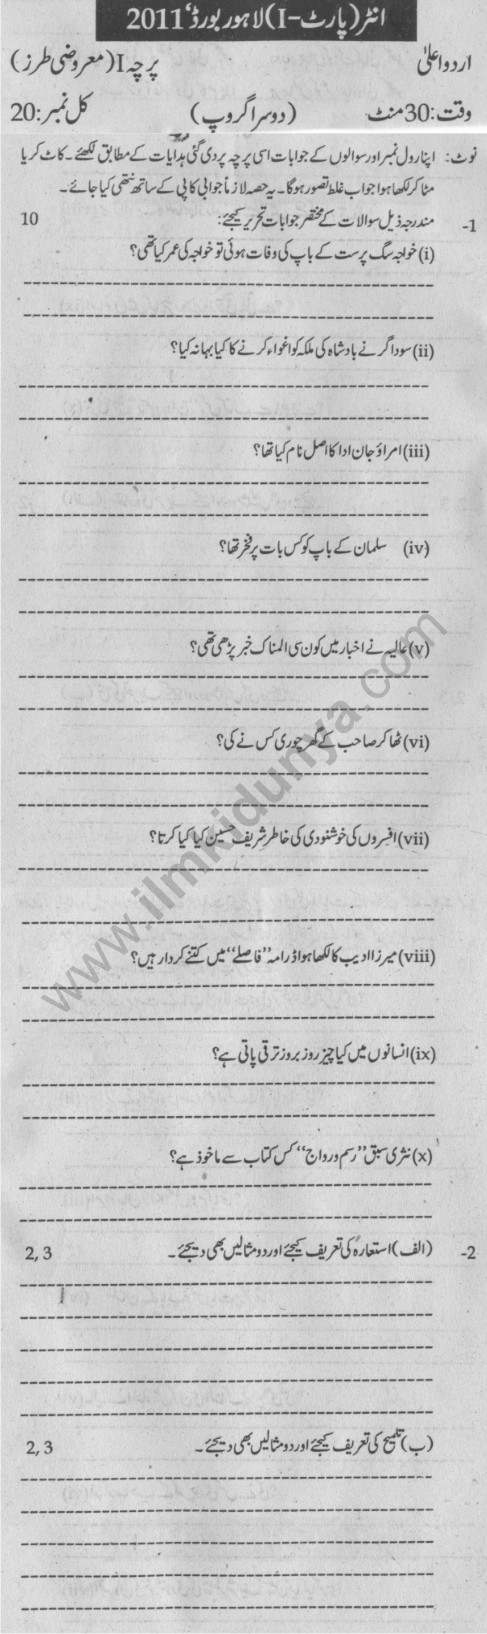 انٹر (پارٹ-I) لاہور بورڈ، 2011
اردو اعلیٰ
پرچہ I (معروضی طرز)
وقت: 30 منٹ (دوسرا گروپ) کل نمبر: 20
نوٹ: اپنا رول نمبر اور سوالوں کے جوابات اسی پرچہ پر دی گئی ہدایات کے مطابق لکھئے۔ کاٹ کر یا
مٹا کر لکھا ہوا جواب غلط تصور ہوگا۔ یہ حصہ لازماً جوابی کاپی کے ساتھ نتھی کیا جائے۔
1- مندرجہ ذیل سوالات کے مختصر جوابات تحریر کیجئے: 10
(i) خواجہ سگ پرست کے باپ کی وفات ہوئی تو خواجہ کی عمر کیا تھی؟
(ii) سوداگر نے بادشاہ کی ملکہ کو اغواء کرنے کا کیا بہانہ کیا؟
(iii) امراؤ جان ادا کا اصل نام کیا تھا؟
(iv) سلمان کے باپ کو کس بات پر فخر تھا؟
(v) عالیہ نے اخبار میں کون سی المناک خبر پڑھی تھی؟
(vi) ٹھاکر صاحب کے گھر چوری کس نے کی؟
(vii) افسروں کی خوشنودی کی خاطر شریف حسین کیا کیا کرتا؟
(viii) میرزا ادیب کا لکھا ہوا ڈرامہ "فاصلے" میں کتنے کردار ہیں؟
(ix) انسانوں میں کیا چیز روز بروز ترقی پاتی ہے؟
(x) نثری سبق "رسم و رواج" کس کتاب سے ماخوذ ہے؟
2- (الف) استعارہ کی تعریف کیجئے اور دو مثالیں بھی دیجئے۔ 2, 3
(ب) تلمیح کی تعریف کیجئے اور دو مثالیں بھی دیجئے۔ 2, 3
www.ilmkidunya.com